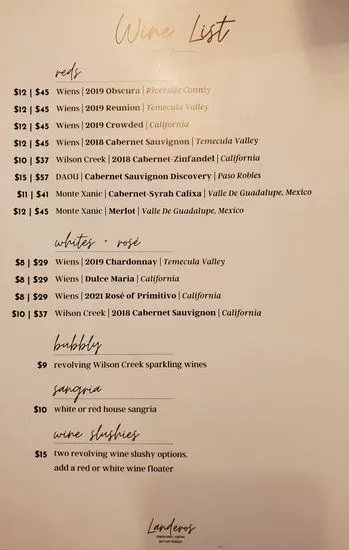 Wine List
reds
$12 | $45 Wiens | 2019 Obscura | Riverside County
$12 | $45 Wiens | 2019 Reunion | Temecula Valley
$12 | $45 Wiens | 2019 Crowded | California
$12 | $45 Wiens | 2018 Cabernet Sauvignon | Temecula Valley
$10 | $37 Wilson Creek | 2018 Cabernet-Zinfandel | California
$15 | $57 DAOU | Cabernet Sauvignon Discovery | Paso Robles
$11 | $41 Monte Xanic | Cabernet-Syrah Calixa | Valle De Guadalupe, Mexico
$12 | $45 Monte Xanic | Merlot | Valle De Guadalupe, Mexico
whites + rosé
$8 | $29 Wiens | 2019 Chardonnay | Temecula Valley
$8 | $29 Wiens | Dulce Maria | California
$8 | $29 Wiens | 2021 Rosé of Primitivo | California
$10 | $37 Wilson Creek | 2018 Cabernet Sauvignon | California
bubbly
$9 revolving Wilson Creek sparkling wines
sangria
$10 white or red house sangria
wine slushies
$15 two revolving wine slushy options.
add a red or white wine floater
Landeros